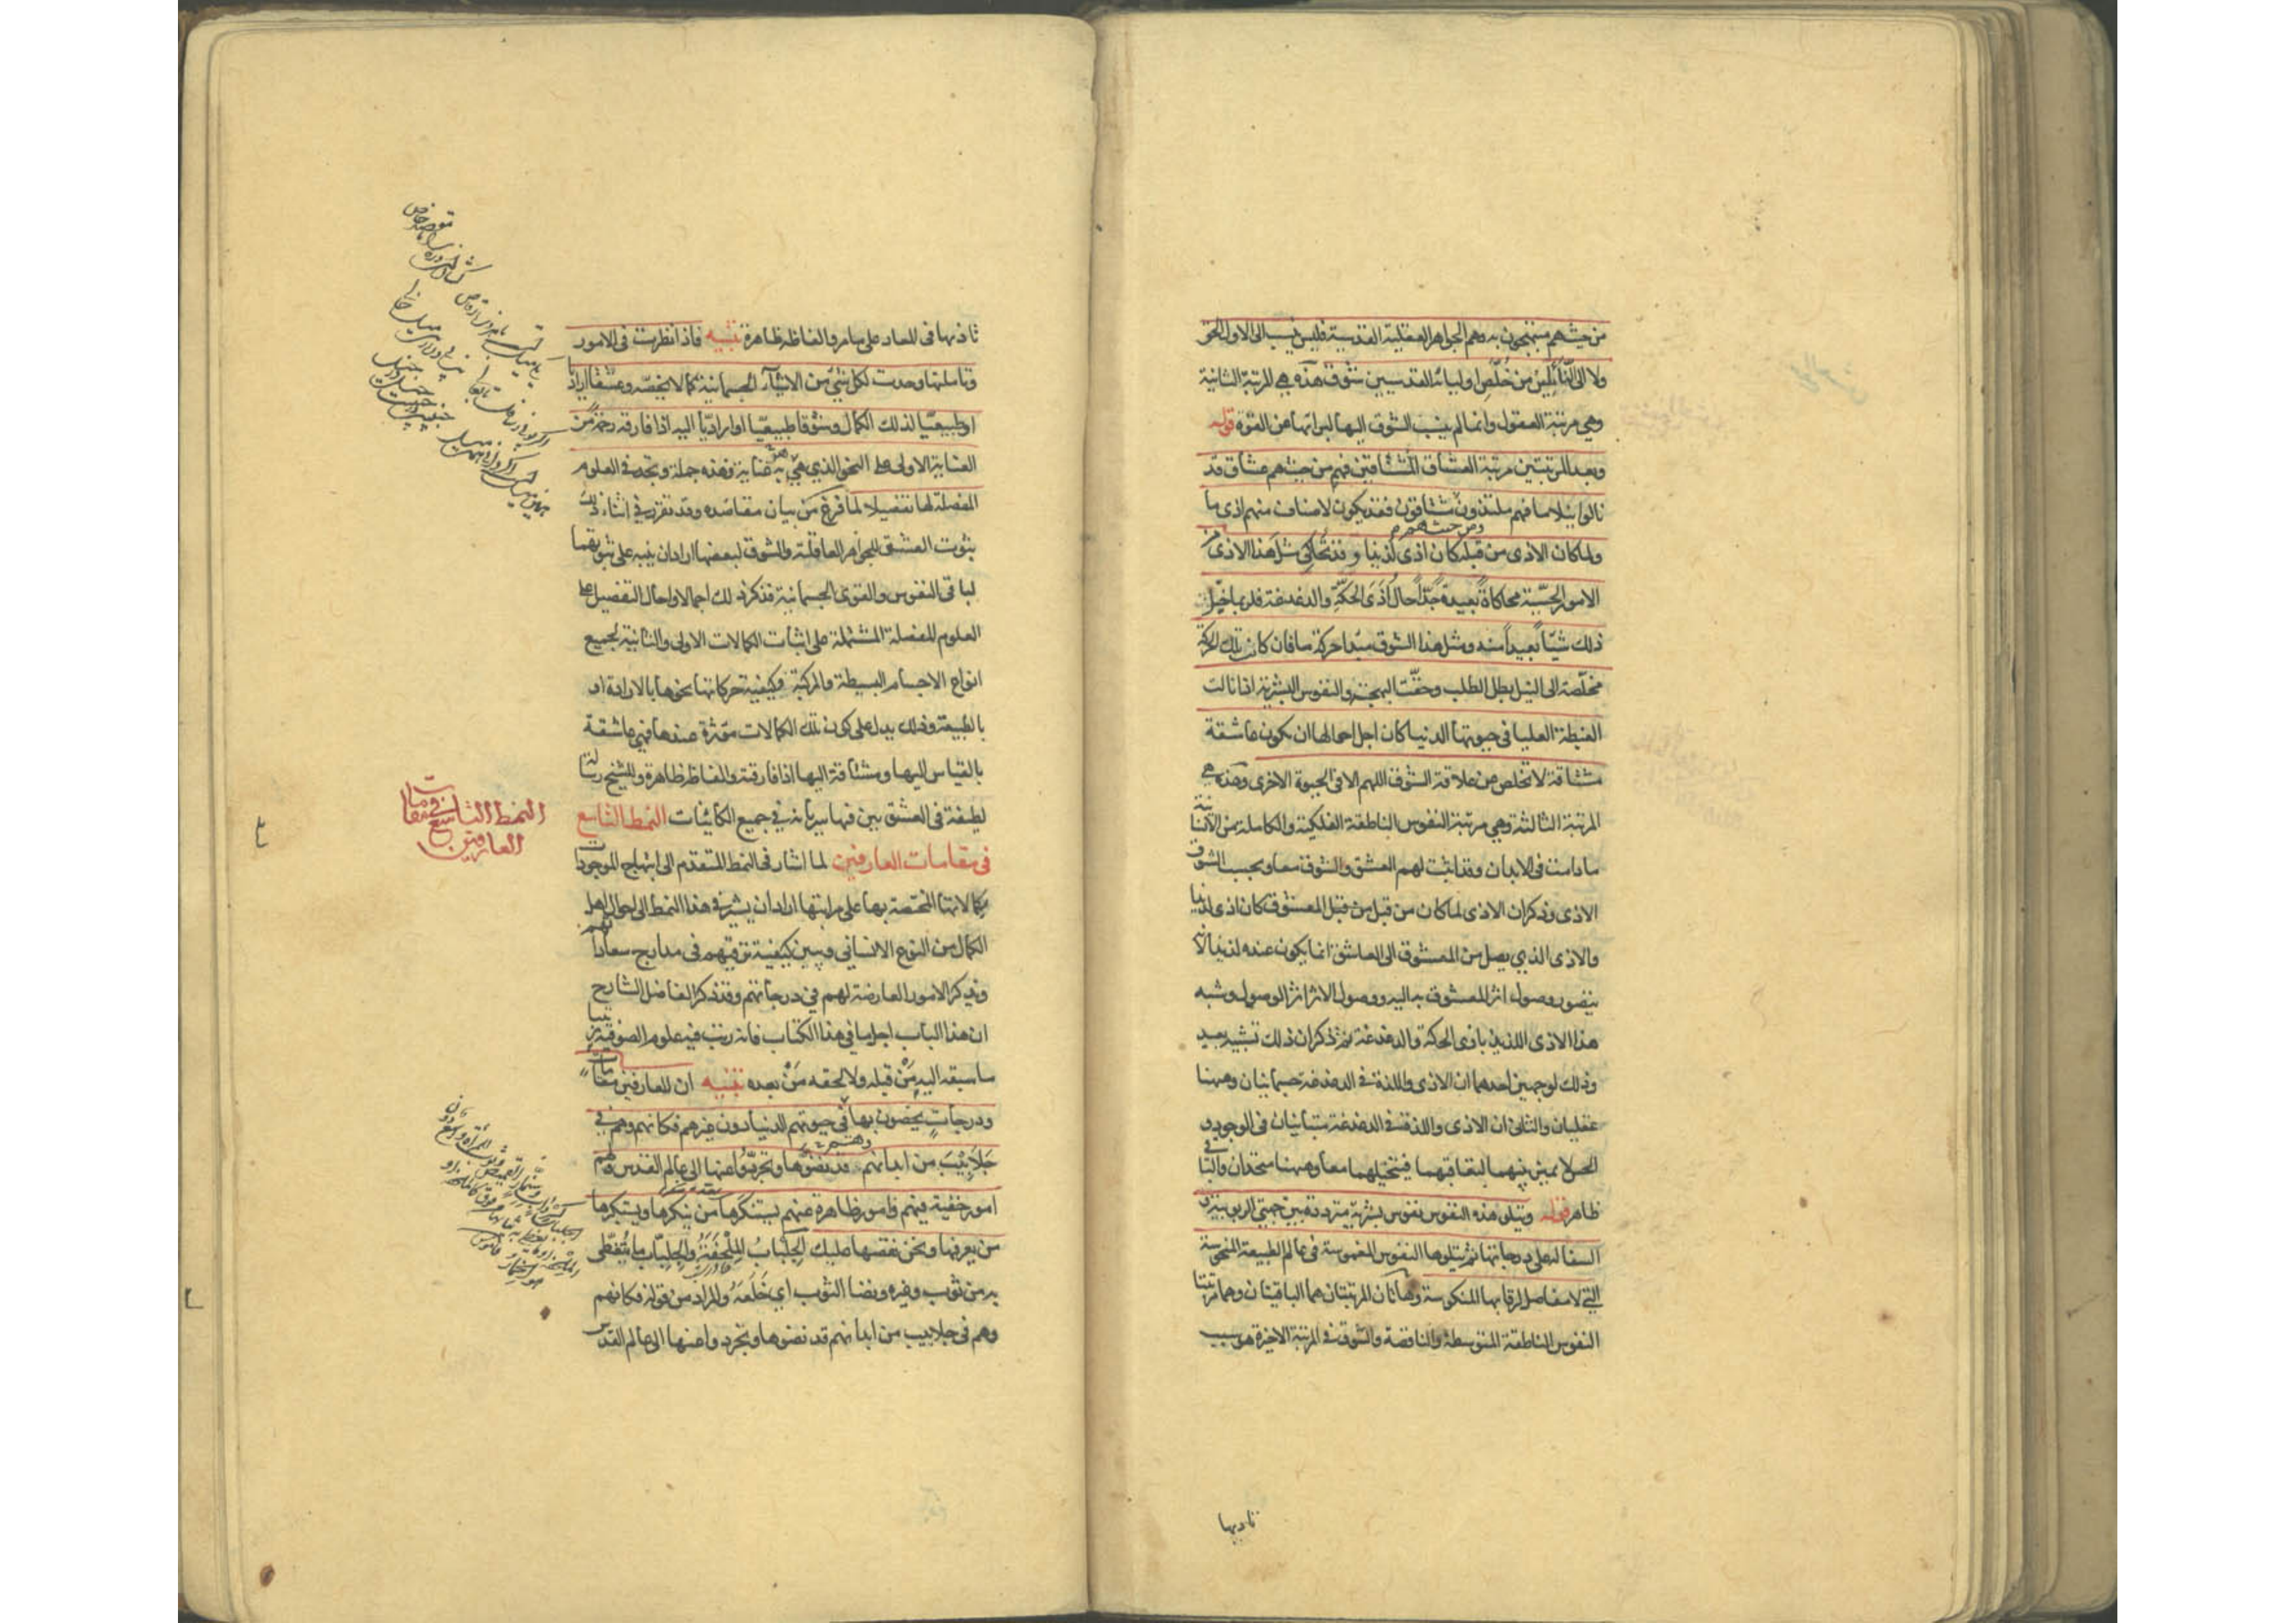 من حيث هم مبتهجون به وهم الجواهر العقلية القدسية فليس ينسب الى الاول الحق
ولا الى التالين من خلص اوليائه القدسيين شوق هذه هي المرتبة الثانية
وهي مرتبة العقول وانما لم ينسب الشوق اليها لبراءتها عن القوة قوله
وبعد المرتبتين مرتبة العشاق المشتاقين فهم من حيث هم عشاق قد
نالوا نيلا ما فهم ملتذون ومن حيث هم مشتاقون فقد يكون لاصناف منهم اذى ما
ولما كان الاذى من قبله كان اذى لذيذا وقد تحاكي مثل هذا الاذى من
الامور الحسية محاكاة بعيدة جدا حال اذى الحكة والدغدغة فلربما خيل
ذلك شيئا بعيدا منه ومثل هذا الشوق مبدا حركة ما فان كانت تلك الحركة
مخلصة الى النيل بطل الطلب وحقت البهجة والنفوس البشرية اذا نالت
الغبطة العليا في حيوتها الدنيا كان اجل احوالها ان يكون عاشقة
مشتاقة لا تخلص عن علاقة الشوق اللهم الا في الحيوة الاخرى وهذه هي
المرتبة الثالثة وهي مرتبة النفوس الناطقة الفلكية والكاملة من الانسانية
ما دامت في الابدان وقد اثبت لهم العشق والشوق معا وبحسب الشوق
الاذى وذكر ان الاذى لما كان من قبل من قبل المعشوق كان اذى لذيذا
والاذى الذي يصل من المعشوق الى العاشق انما يكون عنده لذيذا لانه
يتصور وصول اثر المعشوق به اليه ووصول الاثر اثر الوصول وشبه
هذا الاذى اللذيذ باذى الحكة والدغدغة ثم ذكر ان ذلك تشبيه بعيد
وذلك لوجهين احدهما ان الاذى واللذة في الدغدغة جسمانيان وههنا
عقليان والثاني ان الاذى واللذة في الدغدغة متباينان في الوجود و
الحس لا يميز بينهما لتعاقبهما فيتخيلهما معا وههنا متحدان والباقي
ظاهر قوله ويتلو هذه النفوس نفوس بشرية مترددة بين جهتي الربوبية و
السفالة على درجاتها ثم يتلوها النفوس المغموسة في عالم الطبيعة المنحوسة
التي لا مفاصل لرقابها المنكوسة وهاتان المرتبتان هما الباقيتان وهما مرتبتا
النفوس الناطقة المتوسطة والناقصة والشوق في المرتبة الاخيرة هو سبب
تاديها
تاذيها في المعاد على ما مر والفاظه ظاهرة تنبيه فاذا نظرت في الامور
وتاملتها وجدت لكل شيء من الاشياء الجسمانية كمالا يخصه وعشقا اراديا
او طبيعيا لذلك الكمال وشوقا طبيعيا او اراديا اليه اذا فارقه رحمة من
العناية الاولى على النحو الذي هي به عناية وهذه جملة وتجد في العلوم
المفصلة لها تفصيلا لما فرغ من بيان مقاصده وقد تقرر في اثناء ذلك
ثبوت العشق للجواهر العاقلة والشوق لبعضها اراد ان ينبه على ثبوتهما
لباقي النفوس والقوى الجسمانية فذكر ذلك اجمالا واحال التفصيل على
العلوم المفصلة المشتملة على اثبات الكمالات الاولى والثانية لجميع
انواع الاجسام البسيطة والمركبة وكيفية حركاتها نحوها بالارادة او
بالطبيعة وذلك يدل على كون تلك الكمالات مؤثرة عندها فهي عاشقة
بالقياس اليها ومشتاقة اليها اذا فارقته والفاظه ظاهرة وللشيخ رسالة
لطيفة في العشق بين فيها سريانه في جميع الكائنات النمط التاسع
في مقامات العارفين لما اشار في النمط المتقدم الى ابتهاج الموجودات
بكمالاتها المختصة بها على مراتبها اراد ان يشير في هذا النمط الى احوال اهل
الكمال من النوع الانساني ويبين كيفية ترقيهم في مدارج سعاداتهم
ويذكر الامور العارضة لهم في درجاتهم وقد ذكر الفاضل الشارح
ان هذا الباب اجل ما في هذا الكتاب فانه رتب فيه علوم الصوفية ترتيبا
ما سبقه اليه من قبله ولا لحقه من بعده تنبيه ان للعارفين مقامات
ودرجات يخصون بها في حيوتهم الدنيا دون غيرهم فكانهم وهم في
جلابيب من ابدانهم قد نضوها وتجردوا عنها الى عالم القدس ولهم
امور خفية فيهم وامور ظاهرة عنهم يستنكرها من ينكرها ويستكبرها
من يعرفها ونحن نقصها عليك الجلباب الملحفة والجلباب ما يتغطى
به من ثوب وغيره ونضا الثوب اي خلعه والمراد من قوله فكانهم
وهم في جلابيب من ابدانهم قد نضوها وتجردوا عنها الى عالم القدس
النمط التاسع في مقامات
العارفين